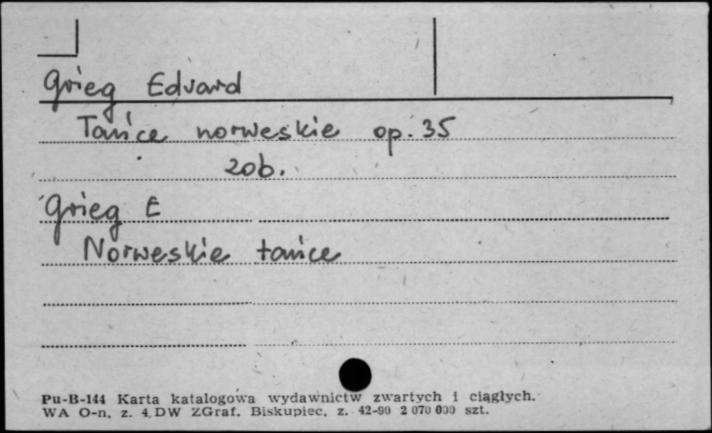 Grieg Edvard
Tańce norweskie op. 35
zob.
Grieg E
Norweskie tańce
Pu-B-144 Karta katalogowa wydawnictw zwartych i ciągłych.
WA O-n, z. 4. DW ZGraf. Biskupiec, z. 42-90 2 070 000 szt.